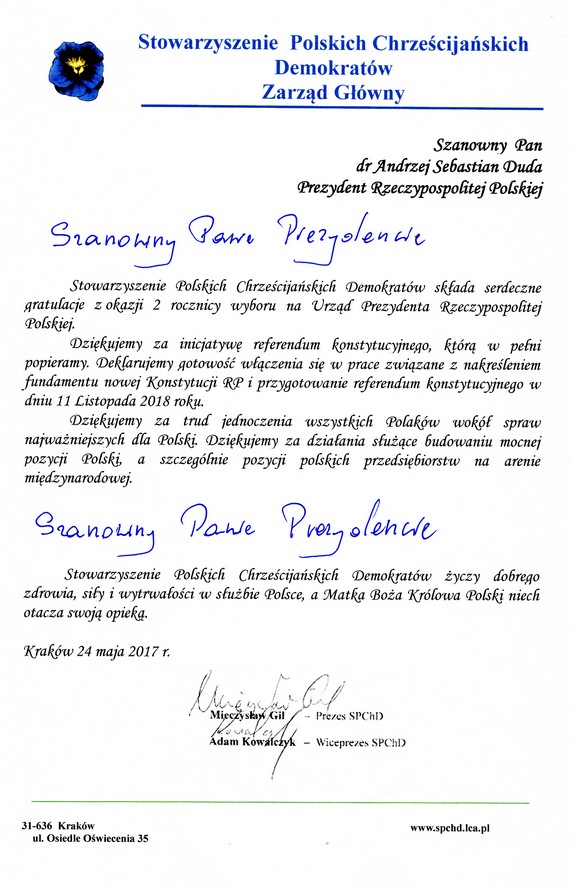 Stowarzyszenie Polskich Chrześcijańskich
Demokratów
Zarząd Główny
Szanowny Pan
dr Andrzej Sebastian Duda
Prezydent Rzeczypospolitej Polskiej
Szanowny Panie Prezydencie
Stowarzyszenie Polskich Chrześcijańskich Demokratów składa serdeczne
gratulacje z okazji 2 rocznicy wyboru na Urząd Prezydenta Rzeczypospolitej
Polskiej.
Dziękujemy za inicjatywę referendum konstytucyjnego, którą w pełni
popieramy. Deklarujemy gotowość włączenia się w prace związane z nakreśleniem
fundamentu nowej Konstytucji RP i przygotowanie referendum konstytucyjnego w
dniu 11 Listopada 2018 roku.
Dziękujemy za trud jednoczenia wszystkich Polaków wokół spraw
najważniejszych dla Polski. Dziękujemy za działania służące budowaniu mocnej
pozycji Polski, a szczególnie pozycji polskich przedsiębiorstw na arenie
międzynarodowej.
Szanowny Panie Prezydencie
Stowarzyszenie Polskich Chrześcijańskich Demokratów życzy dobrego
zdrowia, siły i wytrwałości w służbie Polsce, a Matka Boża Królowa Polski niech
otacza swoją opieką.
Kraków 24 maja 2017 r.
Mieczysław Gil
Mieczysław Gil – Prezes SPChD
Kowalczyk
Adam Kowalczyk – Wiceprezes SPChD
31-636 Kraków www.spchd.lca.pl
ul. Osiedle Oświecenia 35